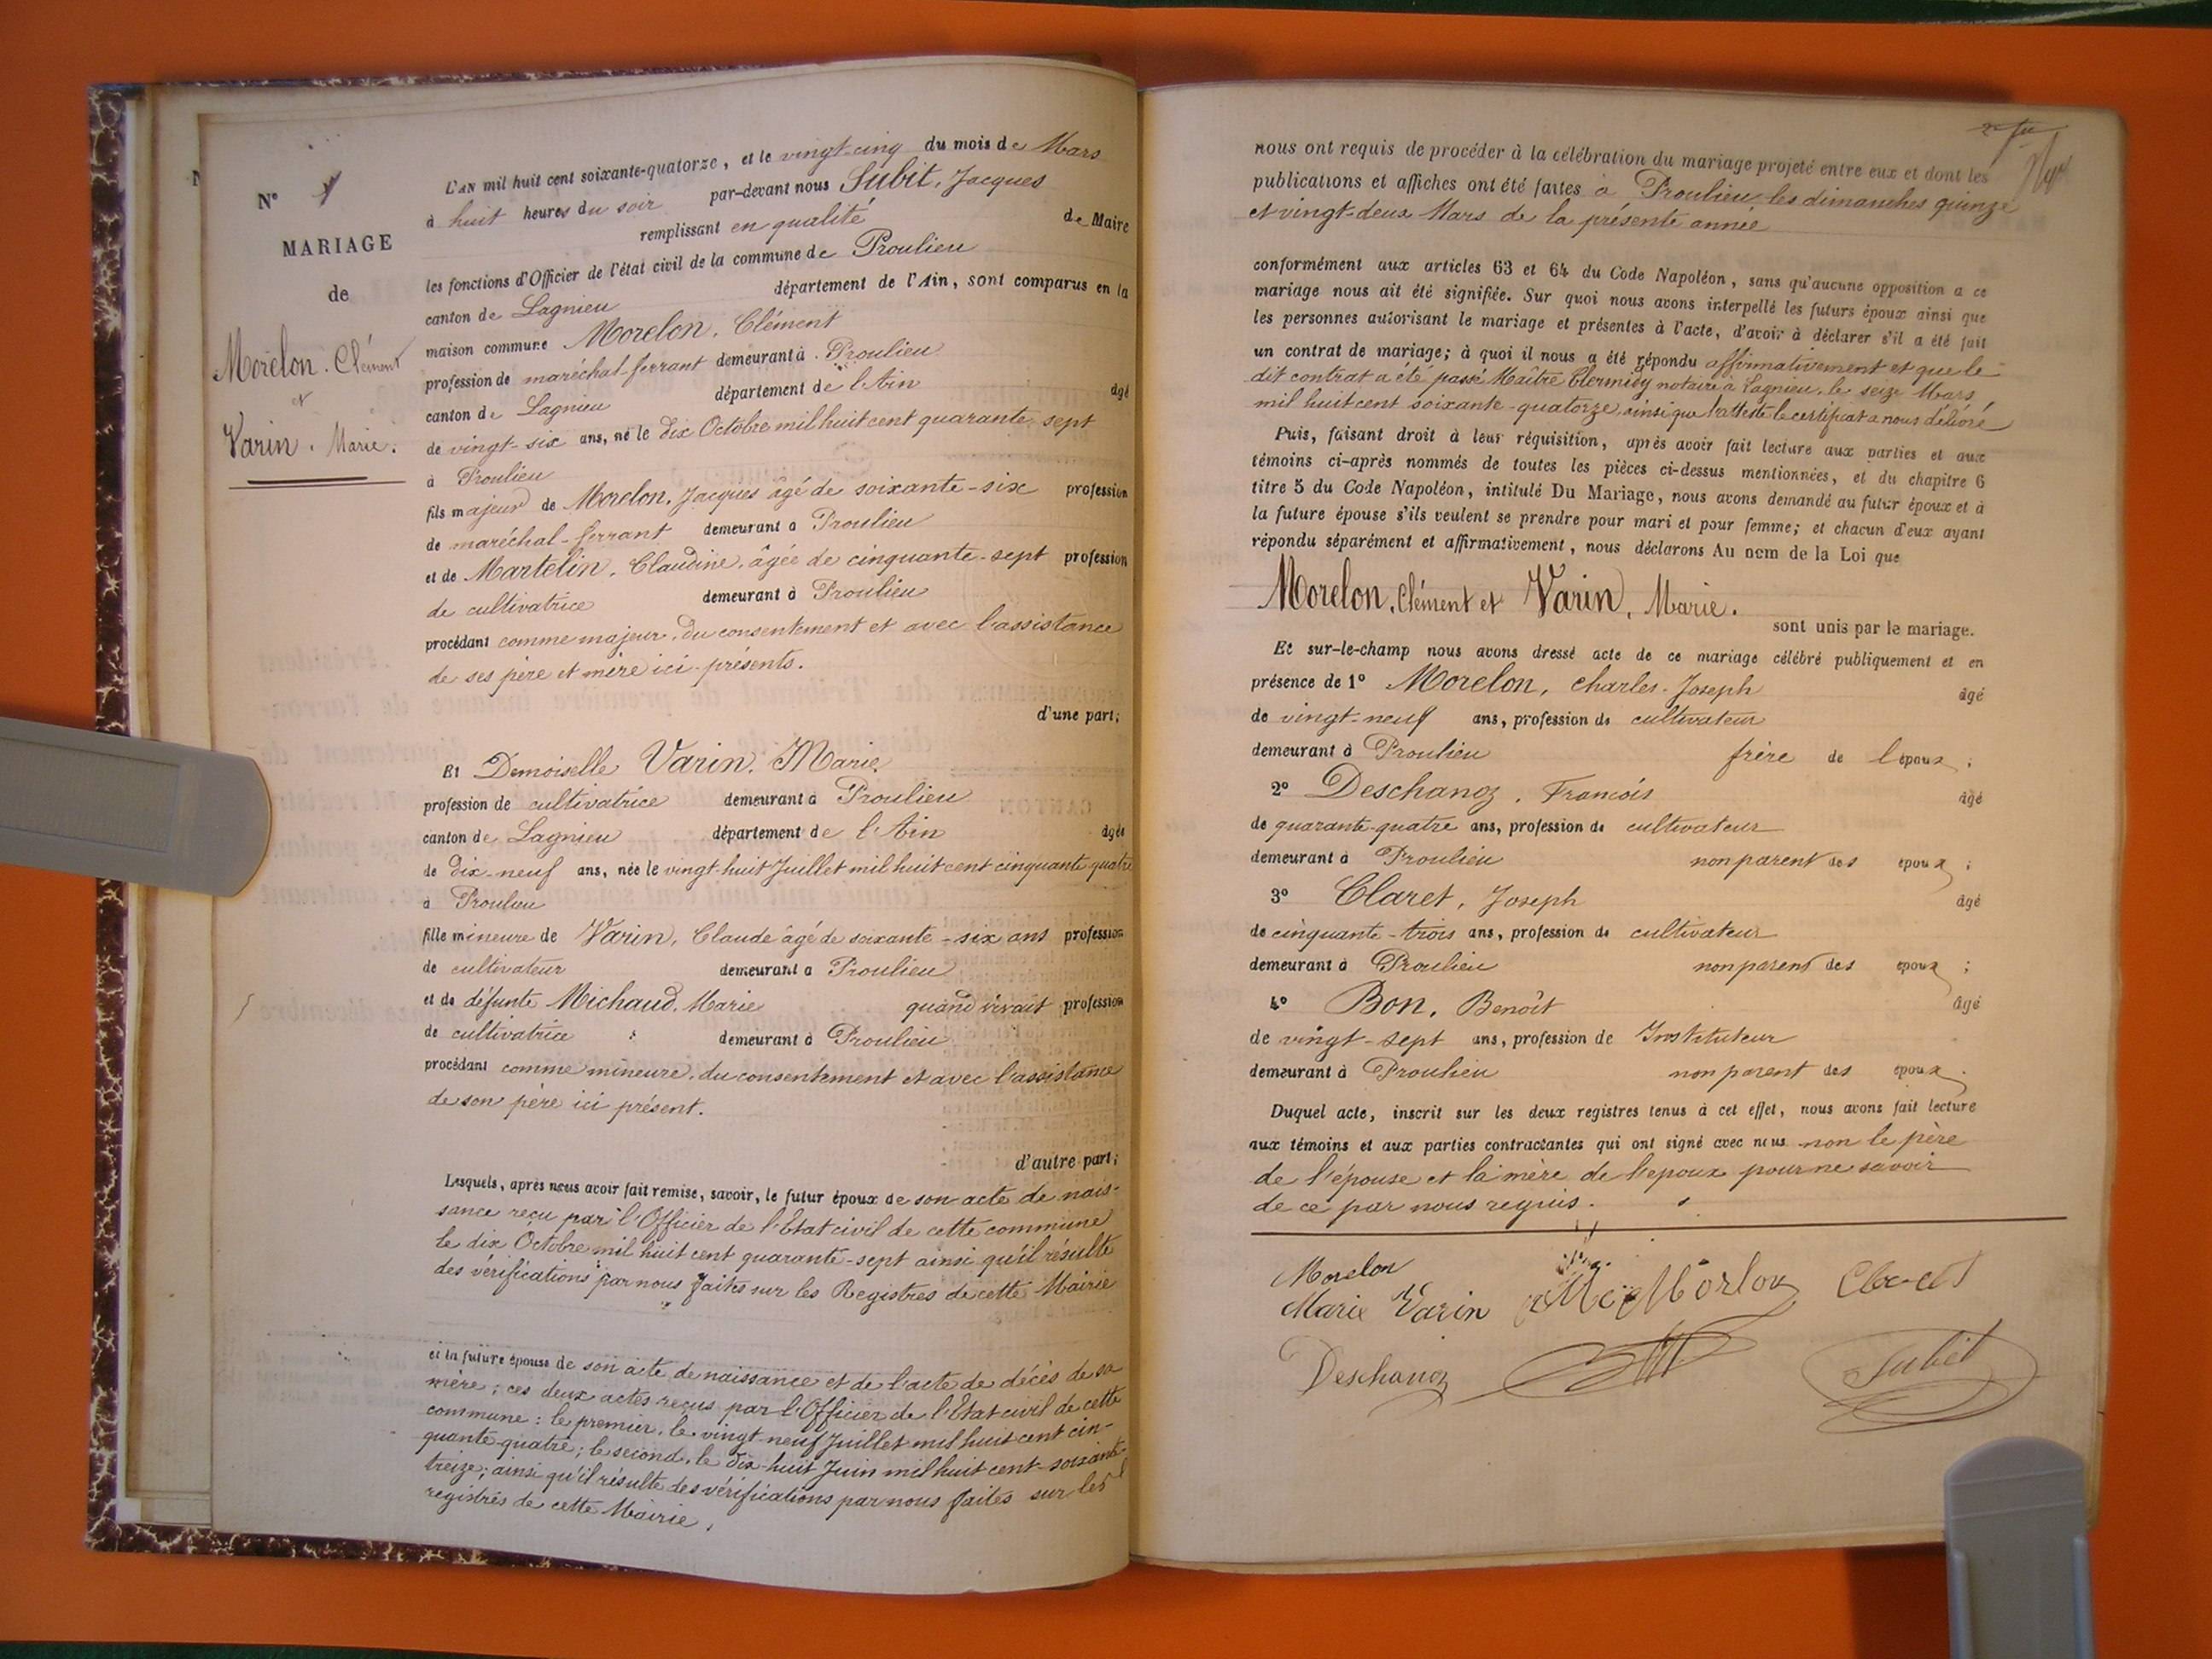 N° 1
MARIAGE
de
Morelon. Clément
et
Varin. Marie.
L'AN mil huit cent soixante-quatorze, et le vingt-cinq du mois de Mars
à huit heures du soir par-devant nous Subit, Jacques
remplissant en qualité de Maire
les fonctions d'Officier de l'état civil de la commune de Proulieu
canton de Lagnieu département de l'Ain, sont comparus en la
maison commune Morelon, Clément
profession de maréchal-ferrant demeurant à Proulieu
canton de Lagnieu département de l'Ain âgé
de vingt-six ans, né le dix Octobre mil huit cent quarante-sept
à Proulieu
fils majeur de Morelon, Jacques âgé de soixante-six profession
de maréchal-ferrant demeurant à Proulieu
et de Martelin, Claudine, âgée de cinquante-sept profession
de cultivatrice demeurant à Proulieu
procédant comme majeur, du consentement et avec l'assistance
de ses père et mère ici présents.
d'une part;
Et Demoiselle Varin, Marie,
profession de cultivatrice demeurant à Proulieu
canton de Lagnieu département de l'Ain âgée
de dix-neuf ans, née le vingt-huit Juillet mil huit cent cinquante-quatre
à Proulieu
fille mineure de Varin, Claude âgé de soixante-six ans profession
de cultivateur demeurant à Proulieu
et de défunte Michaud, Marie quand vivait profession
de cultivatrice demeurant à Proulieu
procédant comme mineure, du consentement et avec l'assistance
de son père ici présent.
d'autre part;
Lesquels, après nous avoir fait remise, savoir, le futur époux de son acte de nais-
sance reçu par l'Officier de l'Etat civil de cette commune
le dix Octobre mil huit cent quarante-sept ainsi qu'il résulte
des vérifications par nous faites sur les Registres de cette Mairie
et la future épouse de son acte de naissance et de l'acte de décès de sa
mère; ces deux actes reçus par l'Officier de l'Etat civil de cette
commune: le premier, le vingt-neuf Juillet mil huit cent cin-
quante-quatre; le second, le dix-huit Juin mil huit cent-soixante-
treize; ainsi qu'il résulte des vérifications par nous faites sur les
registres de cette Mairie.
nous ont requis de procéder à la célébration du mariage projeté entre eux et dont les
publications et affiches ont été faites à Proulieu les dimanches quinze
et vingt-deux Mars de la présente année
conformément aux articles 63 et 64 du Code Napoléon, sans qu'aucune opposition a ce
mariage nous ait été signifiée. Sur quoi nous avons interpellé les futurs époux ainsi que
les personnes autorisant le mariage et présentes à l'acte, d'avoir à déclarer s'il a été fait
un contrat de mariage; à quoi il nous a été répondu affirmativement et que le
dit contrat a été passé Maître Clermidy notaire à Lagnieu, le seize Mars
mil huit cent soixante-quatorze, ainsi que l'atteste le certificat a nous délivré
Puis, faisant droit à leur réquisition, après avoir fait lecture aux parties et aux
témoins ci-après nommés de toutes les pièces ci-dessus mentionnées, et du chapitre 6
titre 5 du Code Napoléon, intitulé Du Mariage, nous avons demandé au futur époux et à
la future épouse s'ils veulent se prendre pour mari et pour femme; et chacun d'eux ayant
répondu séparément et affirmativement, nous déclarons Au nom de la Loi que
Morelon, Clément et Varin, Marie.
sont unis par le mariage.
Et sur-le-champ nous avons dressé acte de ce mariage célébré publiquement et en
présence de 1° Morelon, Charles-Joseph âgé
de vingt-neuf ans, profession de cultivateur
demeurant à Proulieu frère de l'époux;
2° Deschanoz, François âgé
de quarante-quatre ans, profession de cultivateur
demeurant à Proulieu non parent des époux;
3° Claret, Joseph âgé
de cinquante-trois ans, profession de cultivateur
demeurant à Proulieu non parent des époux;
4° Bon, Benoît âgé
de vingt-sept ans, profession de Instituteur
demeurant à Proulieu non parent des époux.
Duquel acte, inscrit sur les deux registres tenus à cet effet, nous avons fait lecture
aux témoins et aux parties contractantes qui ont signé avec nous non le père
de l'épouse et la mère de l'époux pour ne savoir
de ce par nous requis.
Morelon
Marie Varin Morlon Claret
Deschanoz Subit